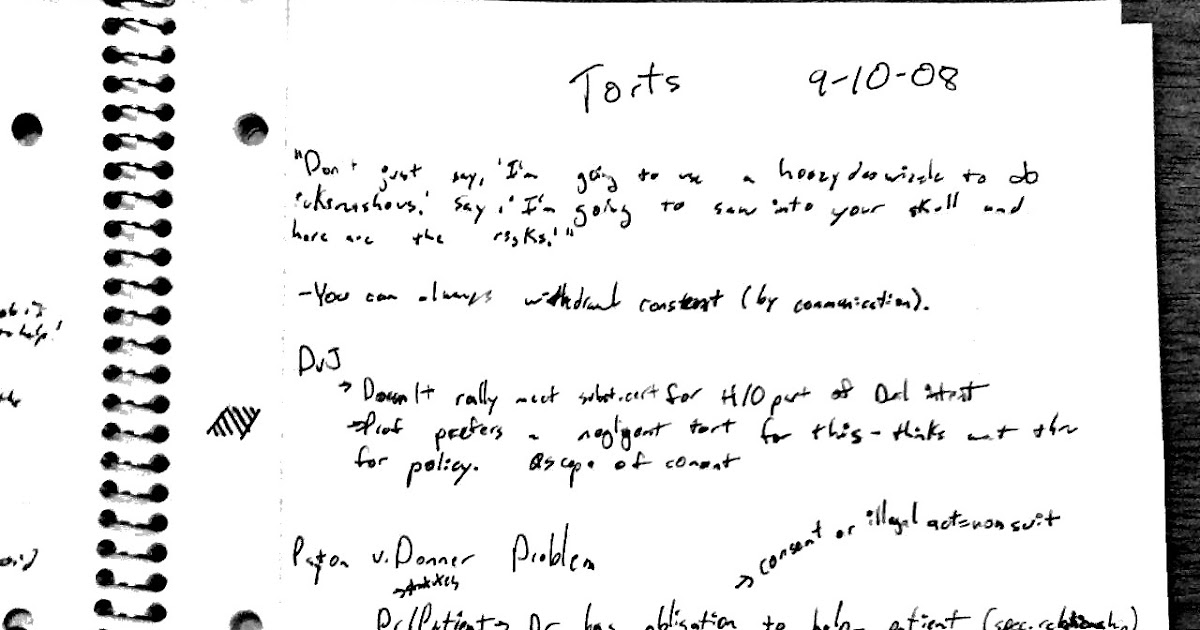 Torts 9-10-08
"Don't just say, 'I'm going to use a hoozydoowizzle to do
Say, 'I'm going to saw into your skull and
here are the risks.'"
-You can always withdraw consent (by communication).
DvJ
→ Doesn't really meet subst. cert for H/O part of intent
→ Prof prefers a negligent tort for this - thinks
for policy. scope of consent
consent or illegal act = non suit
v. Donner Problem
Dr/Patient → Dr has obligation to help patient (spec. relationship)
help!